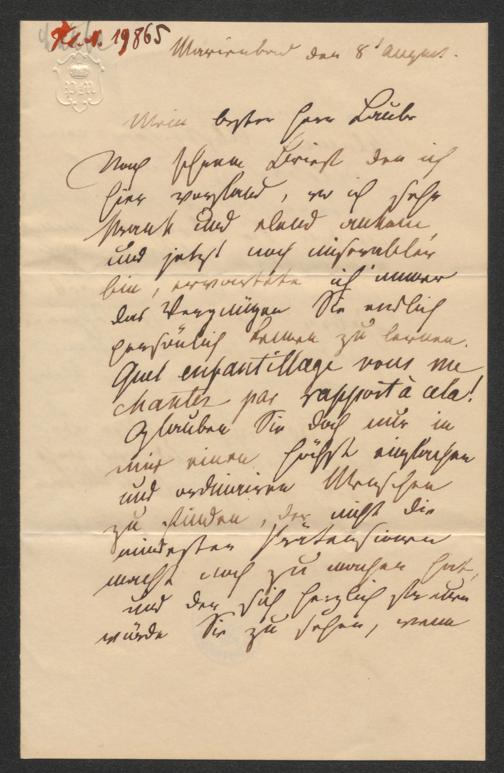 I.N. 19865
Marienbad den 8t August.
Mein bester Herr Laube
Nach Ihrem Brief den ich
hier vorfand, wo ich sehr
krank und elend ankam,
und jetzt noch miserabler
bin, erwartete ich immer
das Vergnügen Sie endlich
persönlich kennen zu lernen.
Quel enfantillage vous me
chantez par rapport à cela!
Glauben Sie doch nur in
mir einen höchst einfachen
und ordinairen Menschen
zu finden, der nicht die
mindesten Prätensionen
macht noch zu machen hat,
und der sich herzlich freuen
würde Sie zu sehen, wenn